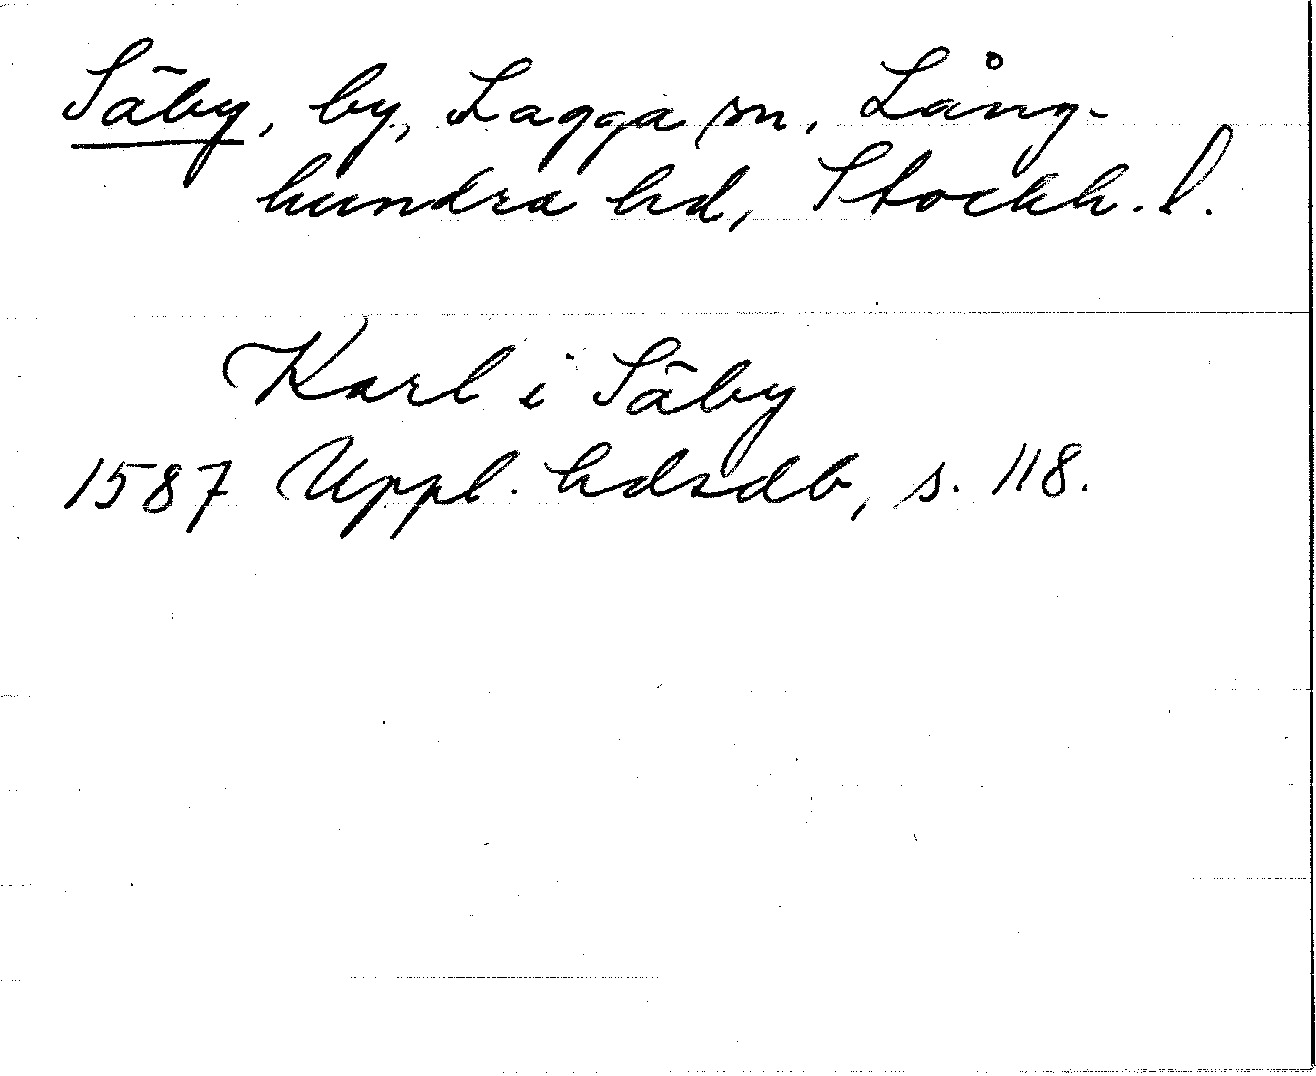 Säby, by, Lagga sn, Lång-
hundra hd, Stockh. l.
Karl i Säby
1587 Uppl. hdsdb, s. 118.